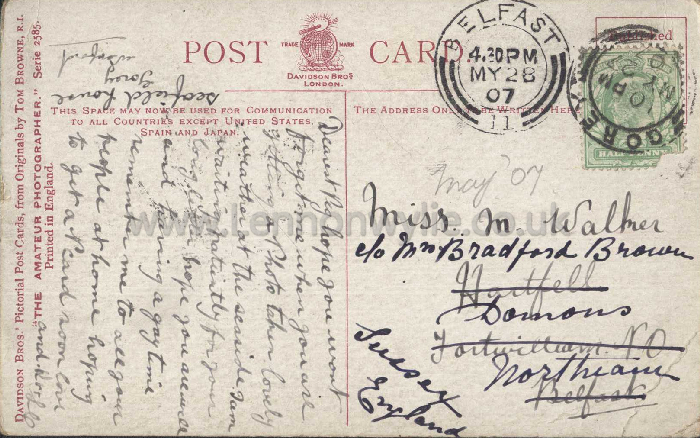 POST CARD
TRADE MARK
DAVIDSON BROS.
LONDON.
BELFAST
4.30 PM
MY 28
07
11
GOREY
HALF PENNY
THIS SPACE MAY NOW BE USED FOR COMMUNICATION
TO ALL COUNTRIES EXCEPT UNITED STATES,
SPAIN AND JAPAN.
THE ADDRESS ONLY TO BE WRITTEN HERE
DAVIDSON BROS.' Pictorial Post Cards, from Originals by TOM BROWNE, R.I.
"THE AMATEUR PHOTOGRAPHER." Serie 2585.
Printed in England.
Seafield House
Gorey
Wexford
Dearest hope you wont
forget me when you are
getting a Photo taken lovely
weather at the seaside I am
waiting patiently for your
hope you are well
and having a gay time
remember me to all your
people at home hoping
to get a P card soon love
and
May '07
Miss. M. Walker
c/o Mrs Bradford Brown
Hartfell
Domons
Fortwilliam
Northiam
Belfast
Sussex
England
www.Lennonwylie.co.uk